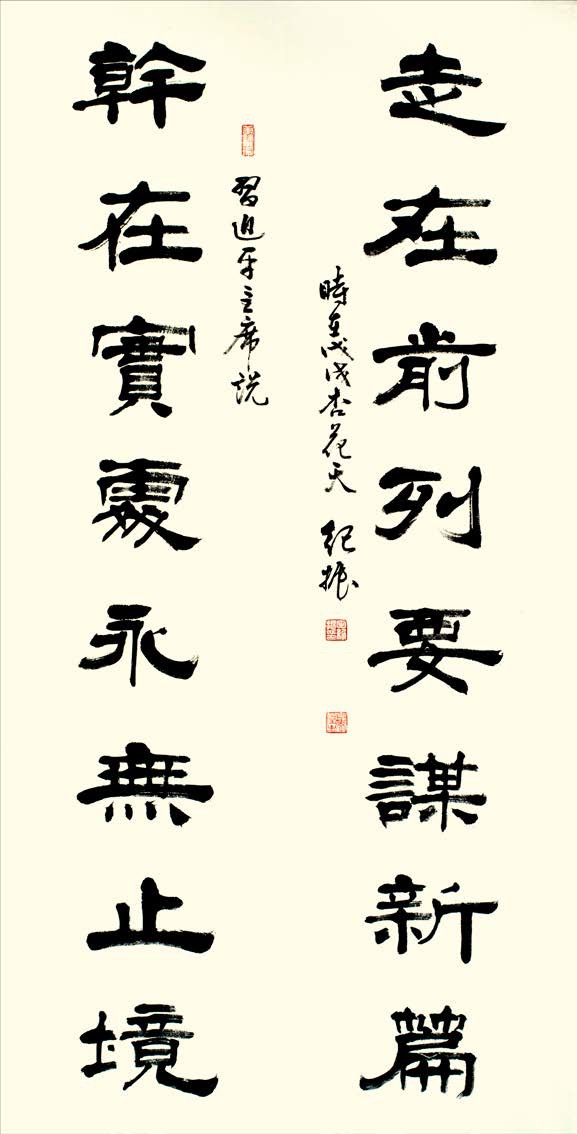 走在前列要謀新篇
幹在實處永無止境
習近平主席説
時在戊戌杏花天 紀振